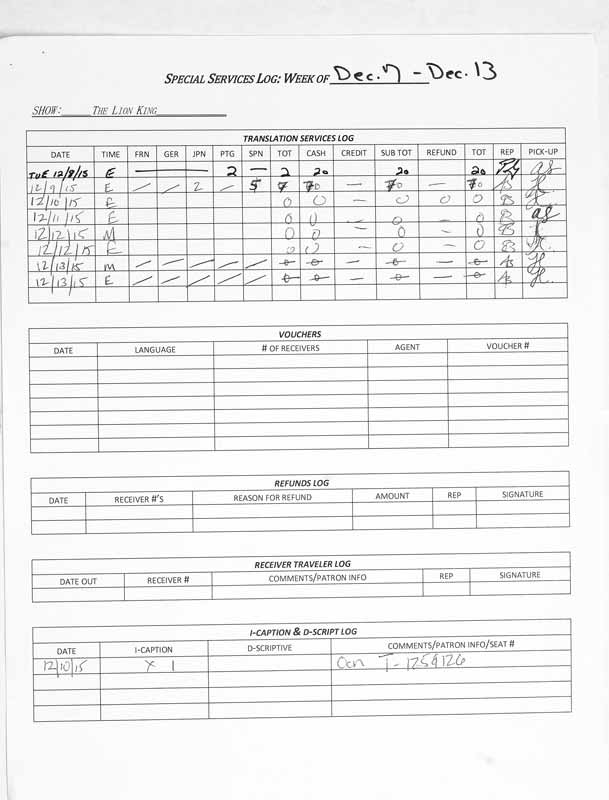 SPECIAL SERVICES LOG: WEEK OF Dec. 7 - Dec. 13
SHOW: THE LION KING
TRANSLATION SERVICES LOG
DATE TIME FRN GER JPN PTG SPN TOT CASH CREDIT SUB TOT REFUND TOT REP PICK-UP
TUE 12/8/15 E — 2 — 2 20 20 20
12/9/15 E / / 2 / 5 7 70 — 70 — 70 AB
12/10/15 E 0 0 — 0 0 0 B
12/11/15 E 0 0 — 0 — 0 B as
12/12/15 M 0 0 — 0 — 0 B
12/12/15 E 0 0 — 0 — 0 B
12/13/15 M / / / / / 0 0 — 0 — 0 AB
12/13/15 E / / / / / 0 0 — 0 — 0 AB
VOUCHERS
DATE LANGUAGE # OF RECEIVERS AGENT VOUCHER #
REFUNDS LOG
DATE RECEIVER #'S REASON FOR REFUND AMOUNT REP SIGNATURE
RECEIVER TRAVELER LOG
DATE OUT RECEIVER # COMMENTS/PATRON INFO REP SIGNATURE
I-CAPTION & D-SCRIPT LOG
DATE I-CAPTION D-SCRIPTIVE COMMENTS/PATRON INFO/SEAT #
12/10/15 X 1